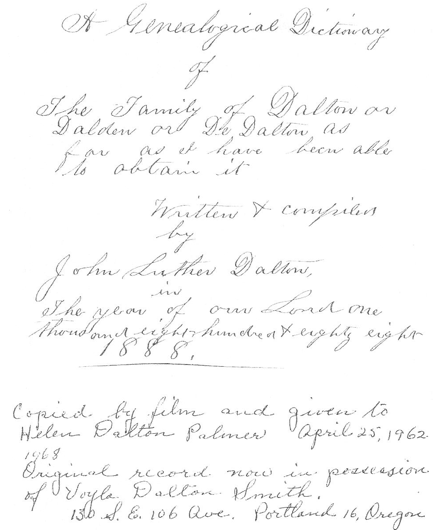 A Genealogical Dictionary
of
The Family of Dalton or
Dalden or De Dalton, as
far as I have been able
to obtain it
Written & compiled
by
John Luther Dalton,
in
The year of our Lord one
thousand eight hundred & eighty eight
1888.
Copied by film and given to
Helen Dalton Palmer April 25, 1962
1968
Original record now in possession
of Voyla Dalton Smith.
130 S. E. 106 Ave. Portland 16, Oregon